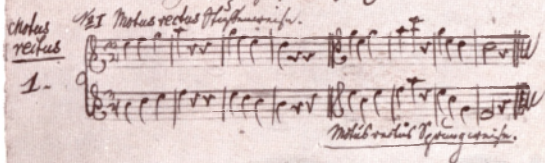 Motus rectus
No I Motus rectus Stufenweise.
1.
Motus rectus Sprungweise.